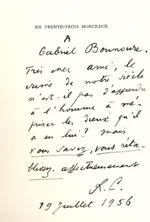 EN TRENTE-TROIS MORCEAUX
A
Gabriel Bounoure.
Très cher ami, le
crime de notre siècle
n'est-il pas d'apprendre
à l'homme à mé-
priser les dieux qu'il
a en lui? mais
vous savez, vous réta-
blissez, affectueusement
R.C.
19 juillet 1956